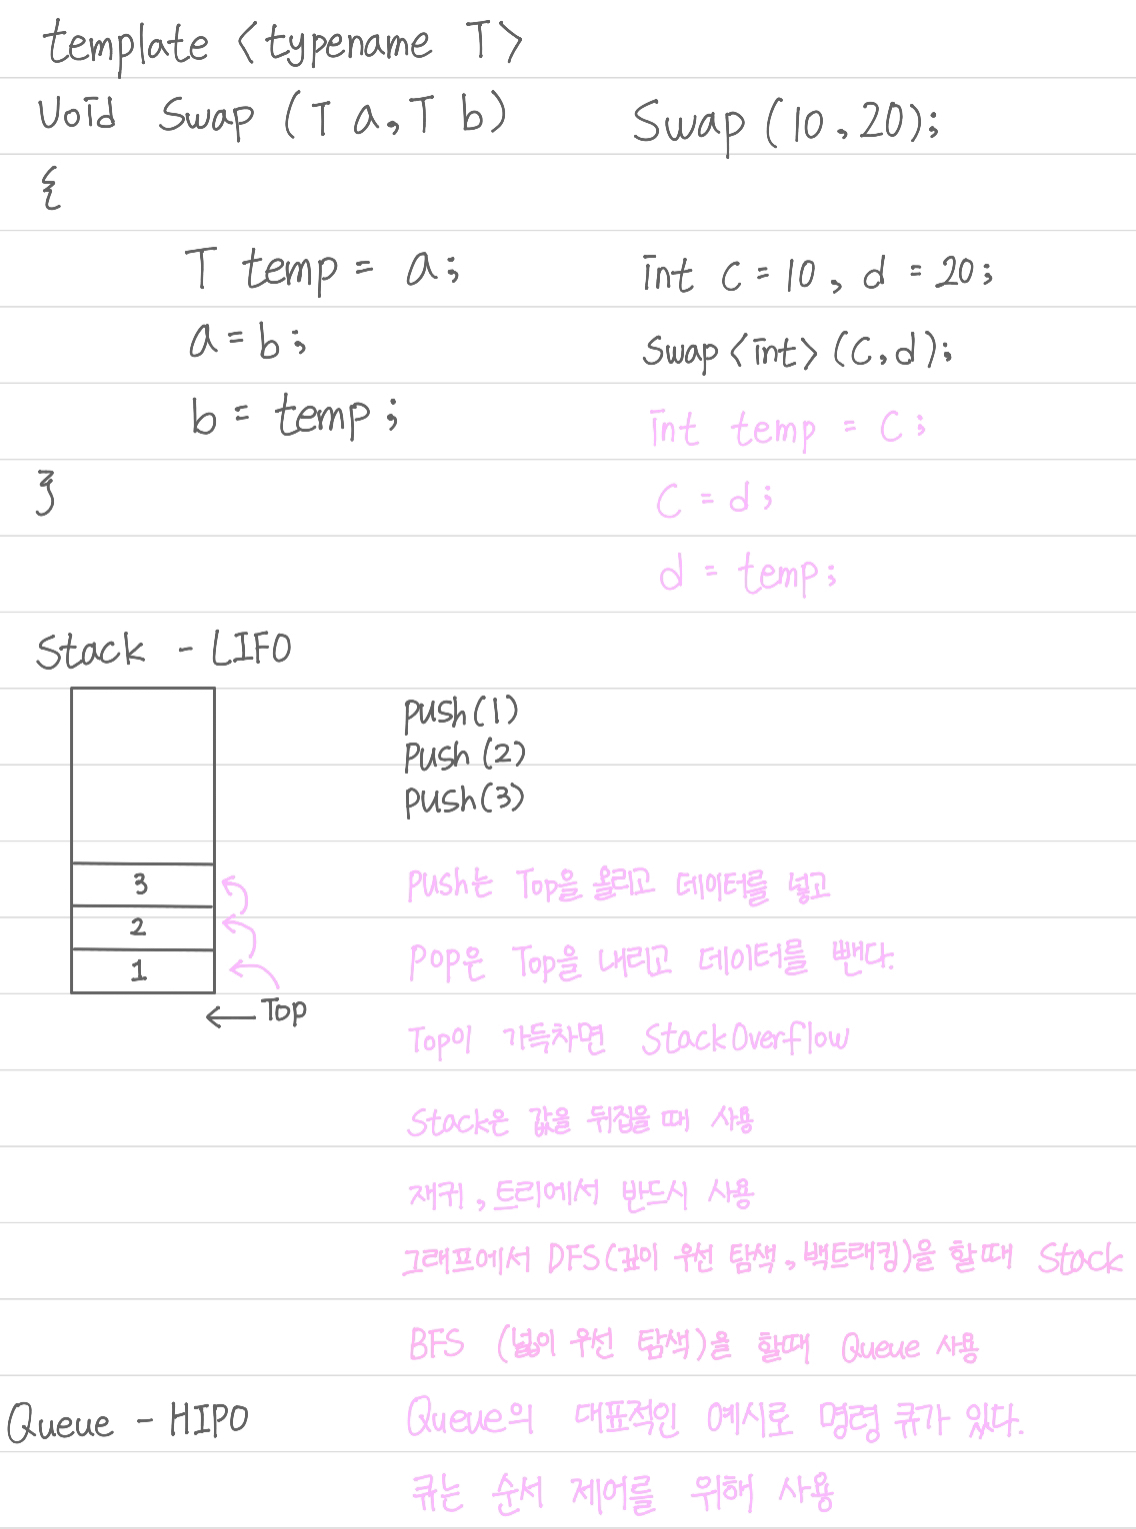 template <typename T>
Void Swap (T a, T b)
{
T temp = a;
a = b;
b = temp;
}
Swap (10, 20);
int C = 10, d = 20;
Swap <int> (C, d);
int temp = C;
C = d;
d = temp;
Stack - LIFO
3
2
1
← Top
push(1)
push(2)
push(3)
Push는 Top을 올리고 데이터를 넣고
Pop은 Top을 내리고 데이터를 뺀다.
Top이 가득차면 StackOverflow
Stack은 값을 뒤집을 때 사용
재귀, 트리에서 반드시 사용
그래프에서 DFS(깊이 우선 탐색, 백트래킹)을 할때 Stack
BFS (넓이 우선 탐색)을 할때 Queue 사용
Queue - HIPO
Queue의 대표적인 예시로 명령 큐가 있다.
큐는 순서 제어를 위해 사용